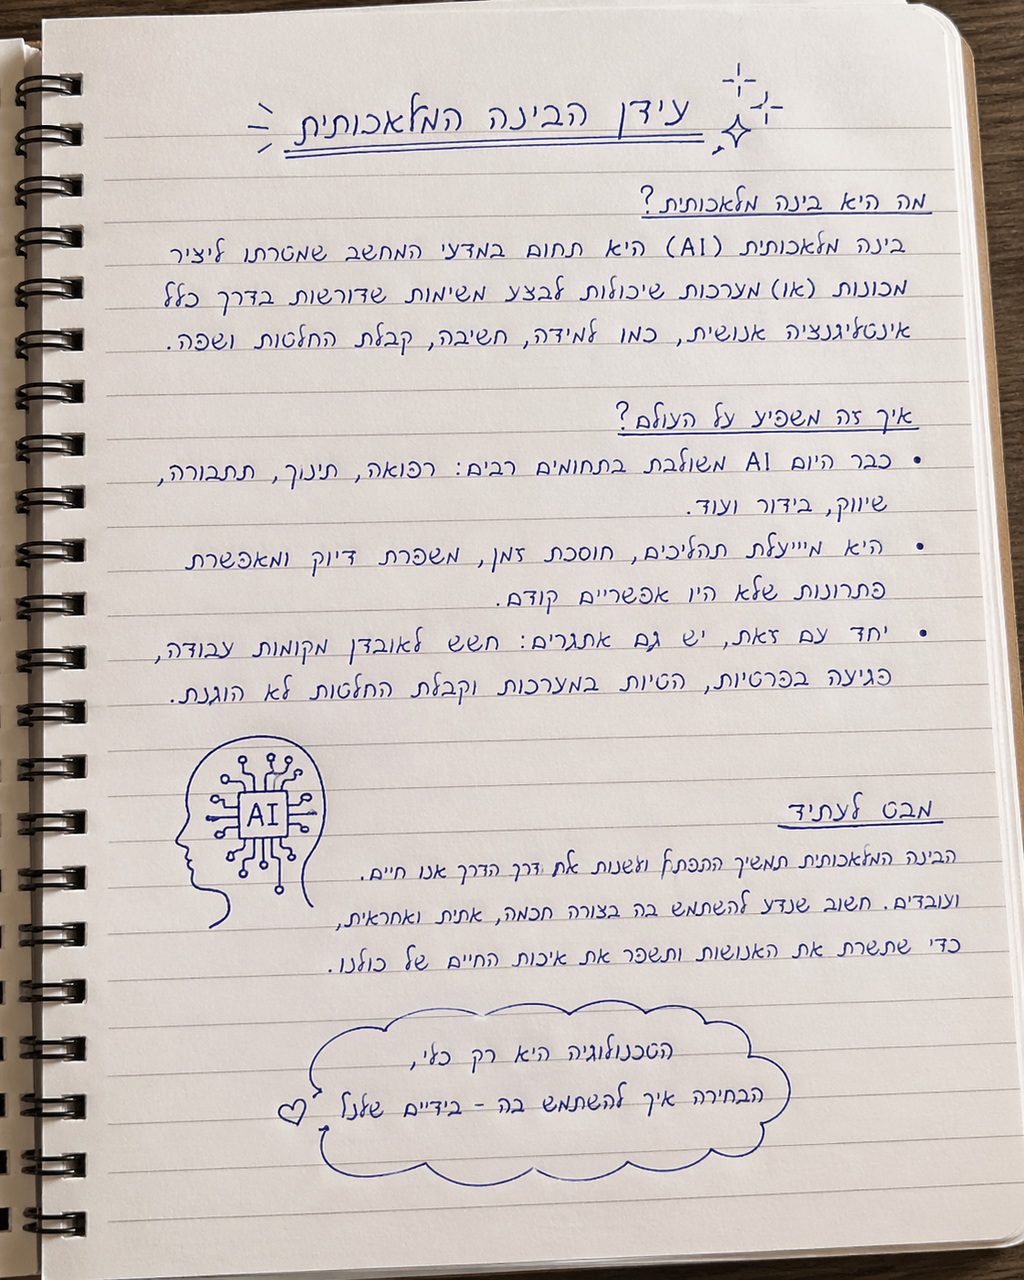 עידן הבינה המלאכותית
מה היא בינה מלאכותית?
בינה מלאכותית (AI) היא תחום במדעי המחשב שמטרתו ליציר
מכונות (או) מערכות שיכולות לבצע משימות שדורשות בדרך כלל
אינטליגנציה אנושית, כמו למידה, חשיבה, קבלת החלטות ושפה.
איך זה משפיע על העולם?
• כבר היום AI משולבת בתחומים רבים: רפואה, חינוך, תחבורה,
שיווק, בידור ועוד.
• היא מיייעלת תהליכים, חוסכת זמן, משפרת דיוק ומאפשרת
פתרונות שלא היו אפשריים קודם.
• יחד עם זאת, יש גם אתגרים: חשש לאובדן מקומות עבודה,
פגיעה בפרטיות, הטיות במערכות וקבלת החלטות לא הוגנת.
AI
מבט לעתיד
הבינה המלאכותית תמשיך דרך הדרך אנו חיים.
ועובדים. חשוב שנדע להשתמש בה בצורה חכמה, אתית ואחראית,
כדי שתשרת את האנושות ותשפר את איכות החיים של כולנו.
הטכנולוגיה היא רק כלי,
הבחירה איך להשתמש בה - בידיים